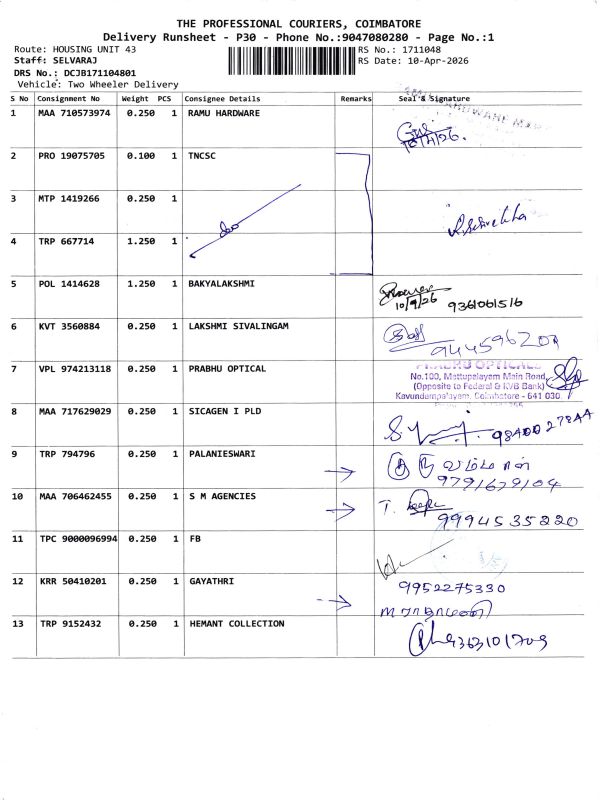 THE PROFESSIONAL COURIERS, COIMBATORE
Delivery Runsheet - P30 - Phone No.:9047080280 - Page No.:1
Route: HOUSING UNIT 43 RS No.: 1711048
Staff: SELVARAJ RS Date: 10-Apr-2026
DRS No.: DCJB171104801
Vehicle: Two Wheeler Delivery
S No Consignment No Weight PCS Consignee Details Remarks Seal & Signature
1 MAA 710573974 0.250 1 RAMU HARDWARE
10/4/26.
2 PRO 19075705 0.100 1 TNCSC
3 MTP 1419266 0.250 1
4 TRP 667714 1.250 1
5 POL 1414628 1.250 1 BAKYALAKSHMI
10/9/26 9361061516
6 KVT 3560884 0.250 1 LAKSHMI SIVALINGAM
7 VPL 974213118 0.250 1 PRABHU OPTICAL
PRABHU OPTICALS
No.100, Mettupalayam Main Road,
(Opposite to Federal & KVB Bank)
Kavundampalayam, Coimbatore - 641 030.
8 MAA 717629029 0.250 1 SICAGEN I PLD
9 TRP 794796 0.250 1 PALANIESWARI
9791679104
10 MAA 706462455 0.250 1 S M AGENCIES
9994535220
11 TPC 9000096994 0.250 1 FB
12 KRR 50410201 0.250 1 GAYATHRI
9952275330
13 TRP 9152432 0.250 1 HEMANT COLLECTION
9363101709